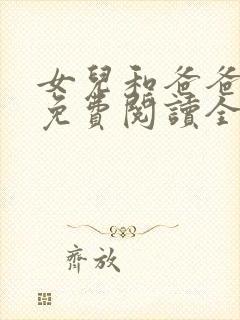 女兒和爸爸
免費閱讀全
齊放